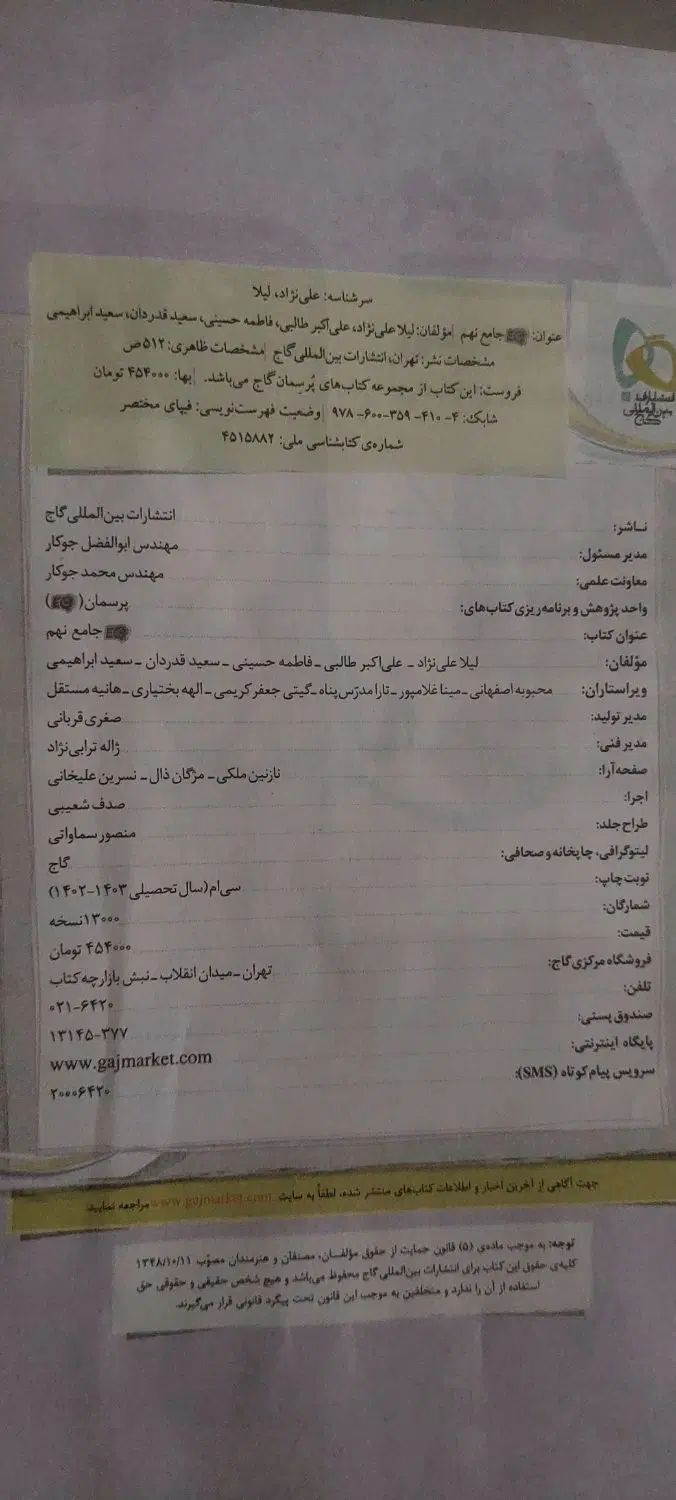 سرشناسه: علی‌نژاد، لیلا
عنوان: EQ جامع نهم | مؤلفان: لیلا علی‌نژاد، علی‌اکبر طالبی، فاطمه حسینی، سعید قدردان، سعید ابراهیمی
مشخصات نشر: تهران، انتشارات بین‌المللی گاج | مشخصات ظاهری: ۵۱۲ص
فروست: این کتاب از مجموعه کتاب‌های پُرسِمان گاج می‌باشد. | بها: ۴۵۴۰۰۰ تومان
شابک: ۴- ۴۱۰- ۳۵۹- ۶۰۰- ۹۷۸ | وضعیت فهرست‌نویسی: فیپای مختصر
شماره‌ی کتابشناسی ملی: ۴۵۱۵۸۸۲
انتشارات
بین‌المللی
گاج
ناشر: انتشارات بین‌المللی گاج
مدیر مسئول: مهندس ابوالفضل جوکار
معاونت علمی: مهندس محمد جوکار
واحد پژوهش و برنامه‌ریزی کتاب‌های: پرسمان (EQ)
عنوان کتاب: EQ جامع نهم
مؤلفان: لیلا علی‌نژاد ـ علی‌اکبر طالبی ـ فاطمه حسینی ـ سعید قدردان ـ سعید ابراهیمی
ویراستاران: محبوبه اصفهانی ـ مینا غلامپور ـ تارا مدرّس‌پناه ـ گیتی جعفر کریمی ـ الهه بختیاری ـ هانیه مستقل
مدیر تولید: صغری قربانی
مدیر فنی: ژاله ترابی‌نژاد
صفحه‌آرا: نازنین ملکی ـ مژگان ذال ـ نسرین علیخانی
اجرا: صدف شعیبی
طراح جلد: منصور سماواتی
لیتوگرافی، چاپخانه و صحافی: گاج
نوبت چاپ: سی‌اُم (سال تحصیلی ۱۴۰۳-۱۴۰۲)
شمارگان: ۱۳۰۰۰ نسخه
قیمت: ۴۵۴۰۰۰ تومان
فروشگاه مرکزی گاج: تهران ـ میدان انقلاب ـ نبش بازارچه کتاب
تلفن: ۰۲۱-۶۴۲۰
صندوق پستی: ۱۳۱۴۵-۳۷۷
پایگاه اینترنتی: www.gajmarket.com
سرویس پیام کوتاه (SMS): ۲۰۰۰۶۴۲۰
جهت آگاهی از آخرین اخبار و اطلاعات کتاب‌های منتشر شده، لطفاً به سایت www.gajmarket.com مراجعه نمایید.
توجه: به موجب ماده‌ی (۵) قانون حمایت از حقوق مؤلفـــان، مصنفان و هنرمندان مصوّب ۱۳۴۸/۱۰/۱۱
کلیه‌ی حقوق این کتاب برای انتشارات بین‌المللی گاج محفوظ می‌باشد و هیچ شخص حقیقی و حقوقی حق
استفاده از آن را ندارد و متخلفین به موجب این قانون تحت پیگرد قانونی قرار می‌گیرند.